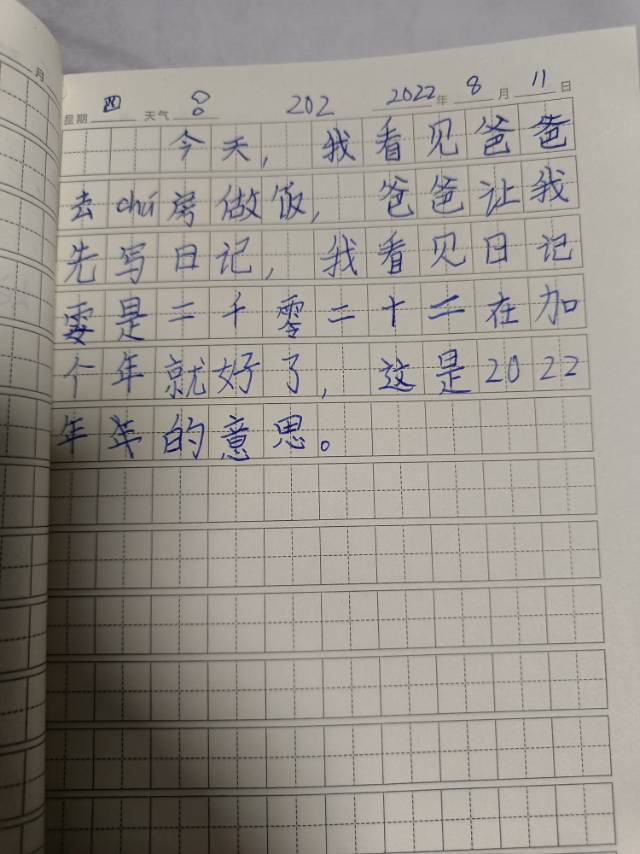 月
星期 四 天气 8 202 2022 年 8 月 11 日
今天，我看见爸爸
去chú房做饭，爸爸让我
先写日记，我看见日记
要是二千零二十二在加
个年就好了，这是2022
年年的意思。